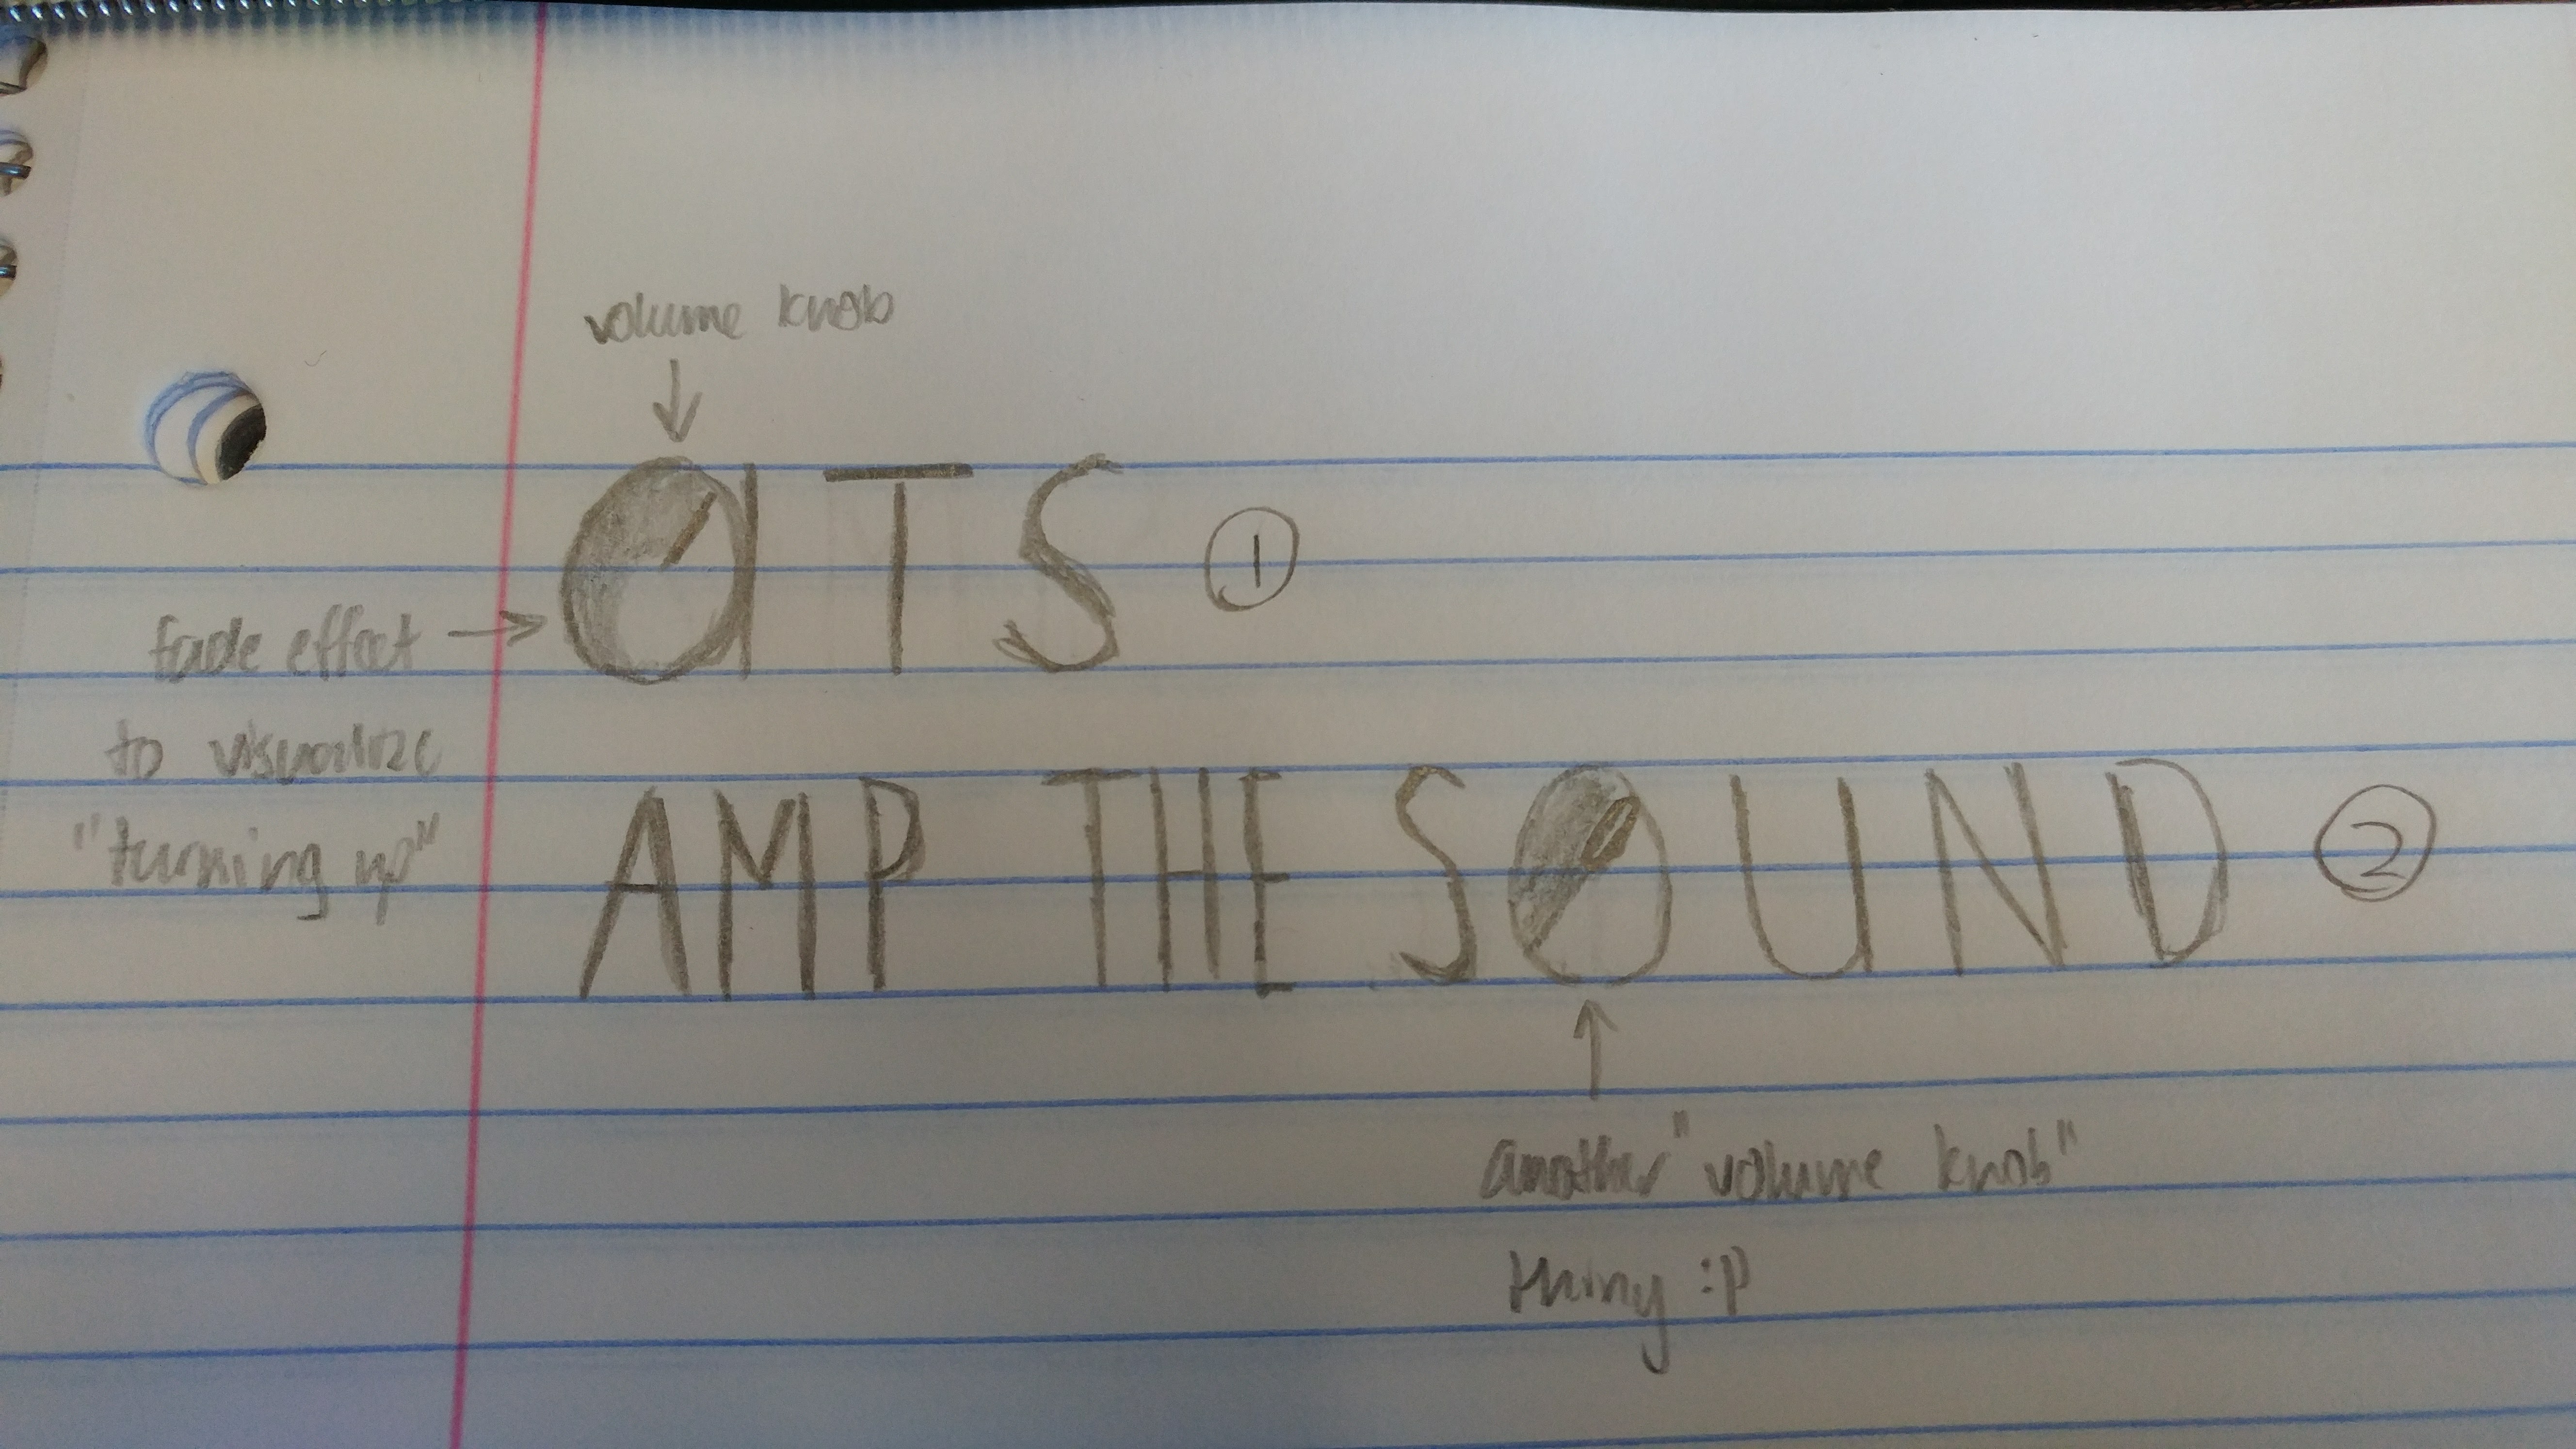 volume knob
aTS ①
fade effect
to visualize
"turning up"
AMP THE SOUND ②
another "volume knob"
thiny :P